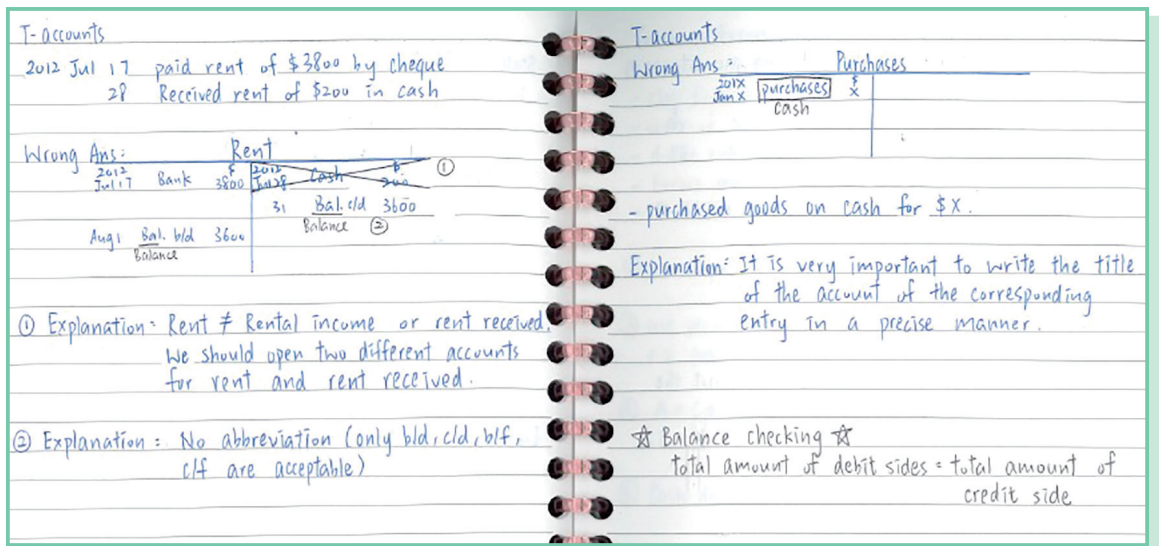 T-accounts
2012 Jul 17 paid rent of $3800 by cheque
28 Received rent of $200 in cash
Wrong Ans:
Rent
2012 $ 2012 $
Jul 17 Bank 3800 Jul 28 Cash 200 ①
31 Bal. c/d 3600
Balance ②
Aug 1 Bal. b/d 3600
Balance
① Explanation: Rent ≠ Rental income or rent received.
We should open two different accounts
for rent and rent received.
② Explanation: No abbreviation (only b/d, c/d, b/f,
c/f are acceptable)
T-accounts
Wrong Ans: Purchases
201X $
Jan X purchases X
cash
- purchased goods on cash for $X.
Explanation: It is very important to write the title
of the account of the corresponding
entry in a precise manner.
☆ Balance checking ☆
total amount of debit sides = total amount of
credit side